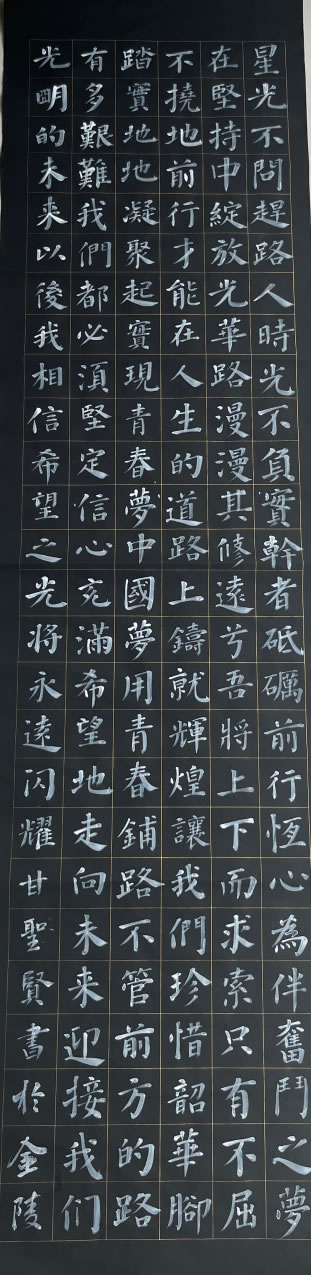 星光不問趕路人時光不負實幹者砥礪前行恆心為伴奮鬥之夢
在堅持中綻放光華路漫漫其修遠兮吾將上下而求索只有不屈
不撓地前行才能在人生的道路上鑄就輝煌讓我們珍惜韶華腳
踏實地地凝聚起實現青春夢中國夢用青春鋪路不管前方的路
有多艱難我們都必須堅定信心充滿希望地走向未来迎接我们
光明的未来以後我相信希望之光將永遠閃耀甘聖賢書於金陵